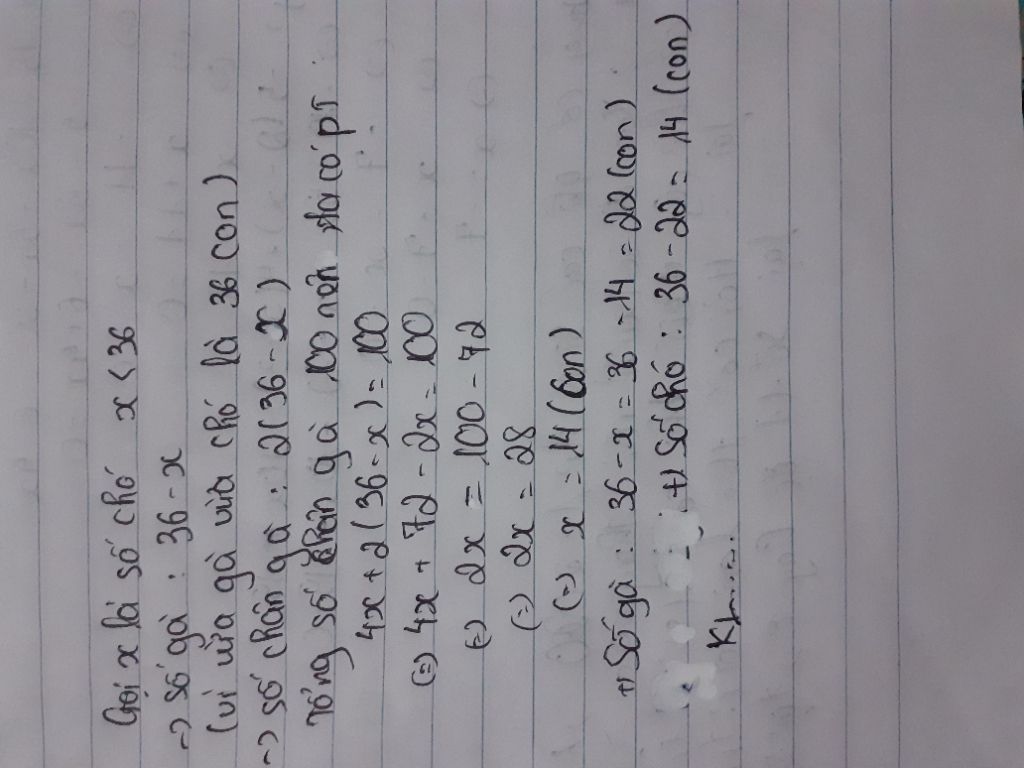 Gọi x là số chó x < 36
-> số gà : 36 - x
(vì vừa gà vừa chó là 36 con)
-> số chân gà : 2(36 - x)
Tổng số chân gà 100 nên ta có pT
4x + 2(36 - x) = 100
(=) 4x + 72 - 2x = 100
(=) 2x = 100 - 72
(=) 2x = 28
(=) x = 14 (con)
+) Số gà : 36 - x = 36 - 14 = 22 (con)
+) Số chó : 36 - 22 = 14 (con)
KL.....